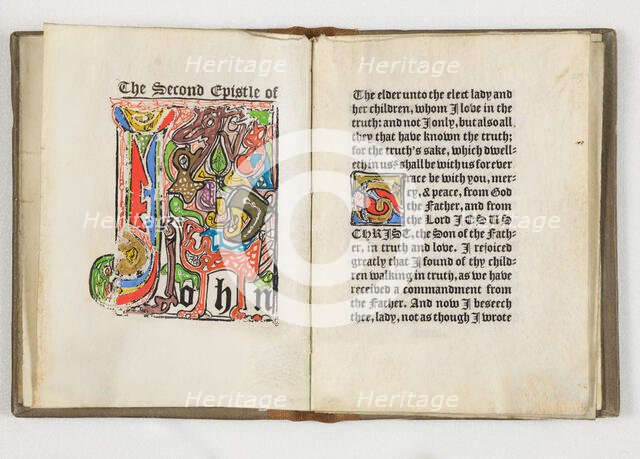 The Second Epistle of
John
The elder unto the elect lady and
her children, whom I love in the
truth: and not I only, but also all
they that have known the truth;
for the truth's sake, which dwell-
eth in us, shall be with us forever
Grace be with you, mer-
cy, & peace, from God
the Father, and from
the Lord JESUS
CHRIST, the Son of the Fath-
er, in truth and love. I rejoiced
greatly that I found of thy child-
ren walking in truth, as we have
received a commandment from
the Father. And now I beseech
thee, lady, not as though I wrote
Heritage
Heritage
Heritage
Heritage
Heritage
Heritage